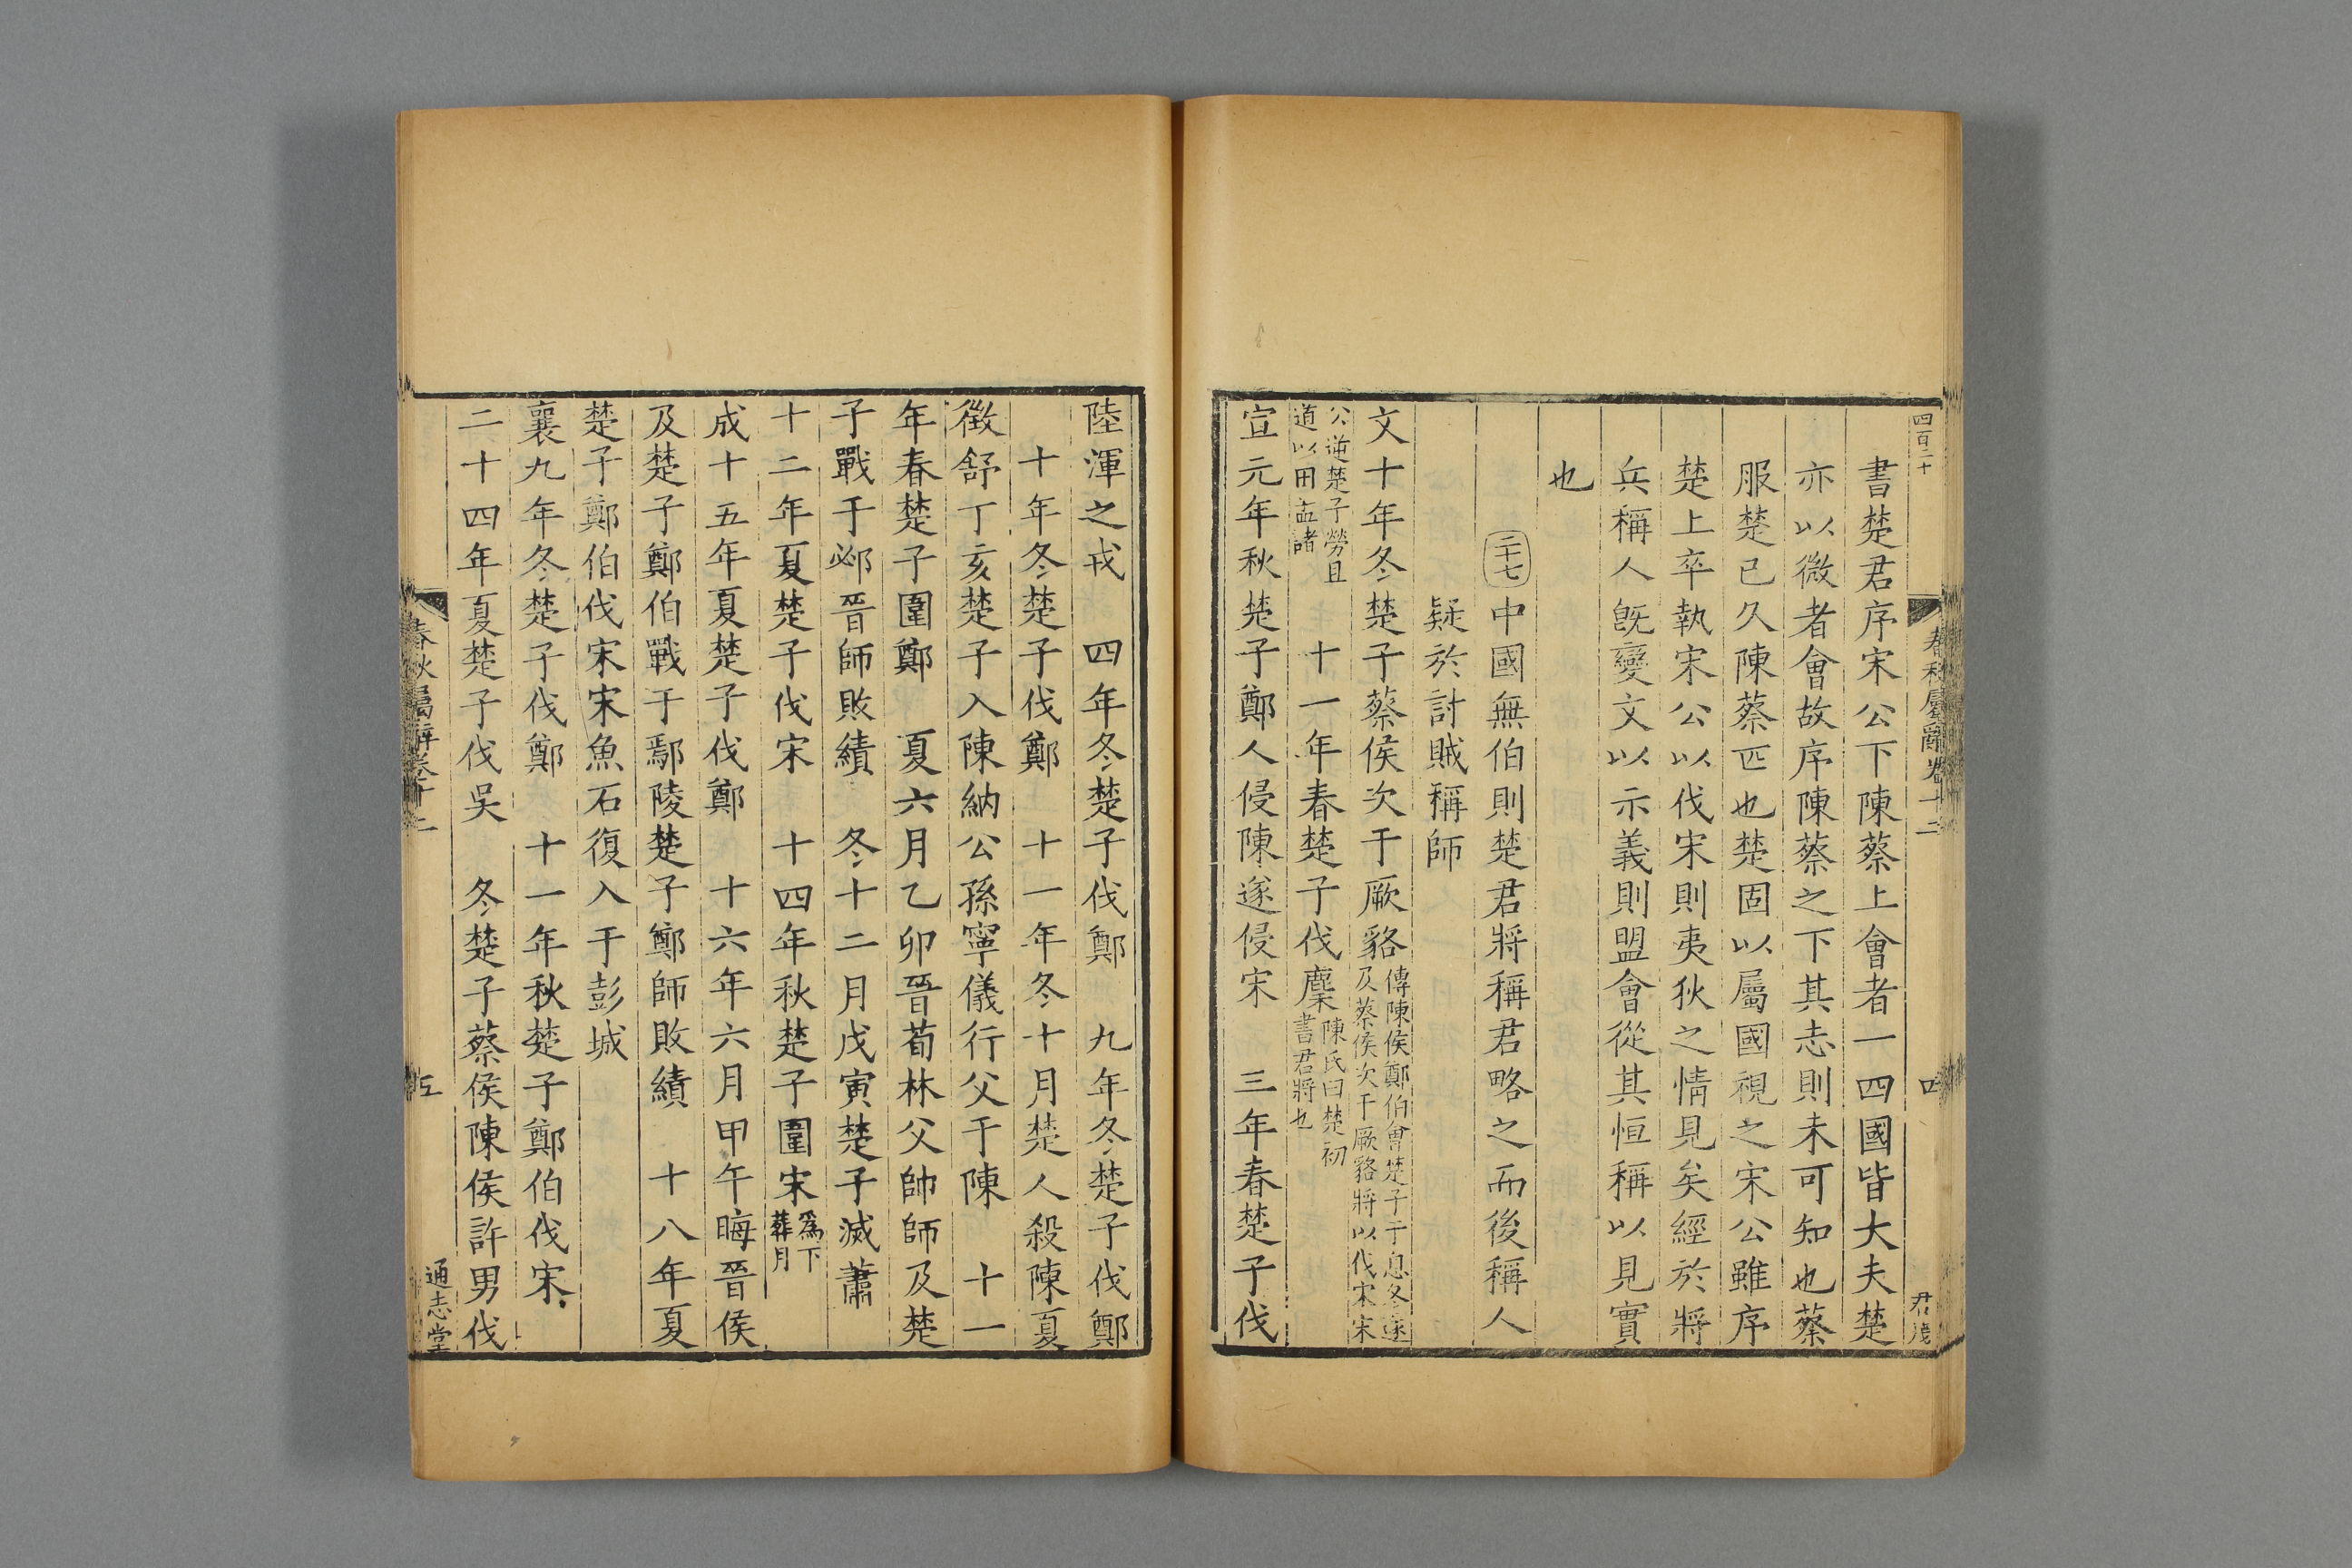 四百二十
春秋屬辭卷十二
四
君茂
書楚君序宋公下陳蔡上會者一四國皆大夫楚
亦以微者會故序陳蔡之下其志則未可知也蔡
服楚已久陳蔡匹也楚固以屬國視之宋公雖序
楚上卒執宋公以伐宋則夷狄之情見矣經於將
兵稱人旣變文以示義則盟會從其恒稱以見實
也
二十七中國無伯則楚君將稱君略之而後稱人
疑於討賊稱師
文十年冬楚子蔡侯次于厥貉傳陳侯鄭伯會楚子于息冬遂及蔡侯次于厥貉將以伐宋宋
公逆楚子勞且道以田孟諸　十一年春楚子伐麇陳氏曰楚初書君將也
宣元年秋楚子鄭人侵陳遂侵宋　三年春楚子伐
陸渾之戎　四年冬楚子伐鄭　九年冬楚子伐鄭
十年冬楚子伐鄭　十一年冬十月楚人殺陳夏
徵舒丁亥楚子入陳納公孫寧儀行父于陳　十一
年春楚子圍鄭　夏六月乙卯晉荀林父帥師及楚
子戰于邲晉師敗績　冬十二月戊寅楚子滅蕭
十二年夏楚子伐宋　十四年秋楚子圍宋爲下葬月
成十五年夏楚子伐鄭　十六年六月甲午晦晉侯
及楚子鄭伯戰于鄢陵楚子鄭師敗績　十八年夏
楚子鄭伯伐宋宋魚石復入于彭城
襄九年冬楚子伐鄭　十一年秋楚子鄭伯伐宋
二十四年夏楚子伐吳　冬楚子蔡侯陳侯許男伐
春秋屬辭卷十二
五
通志堂